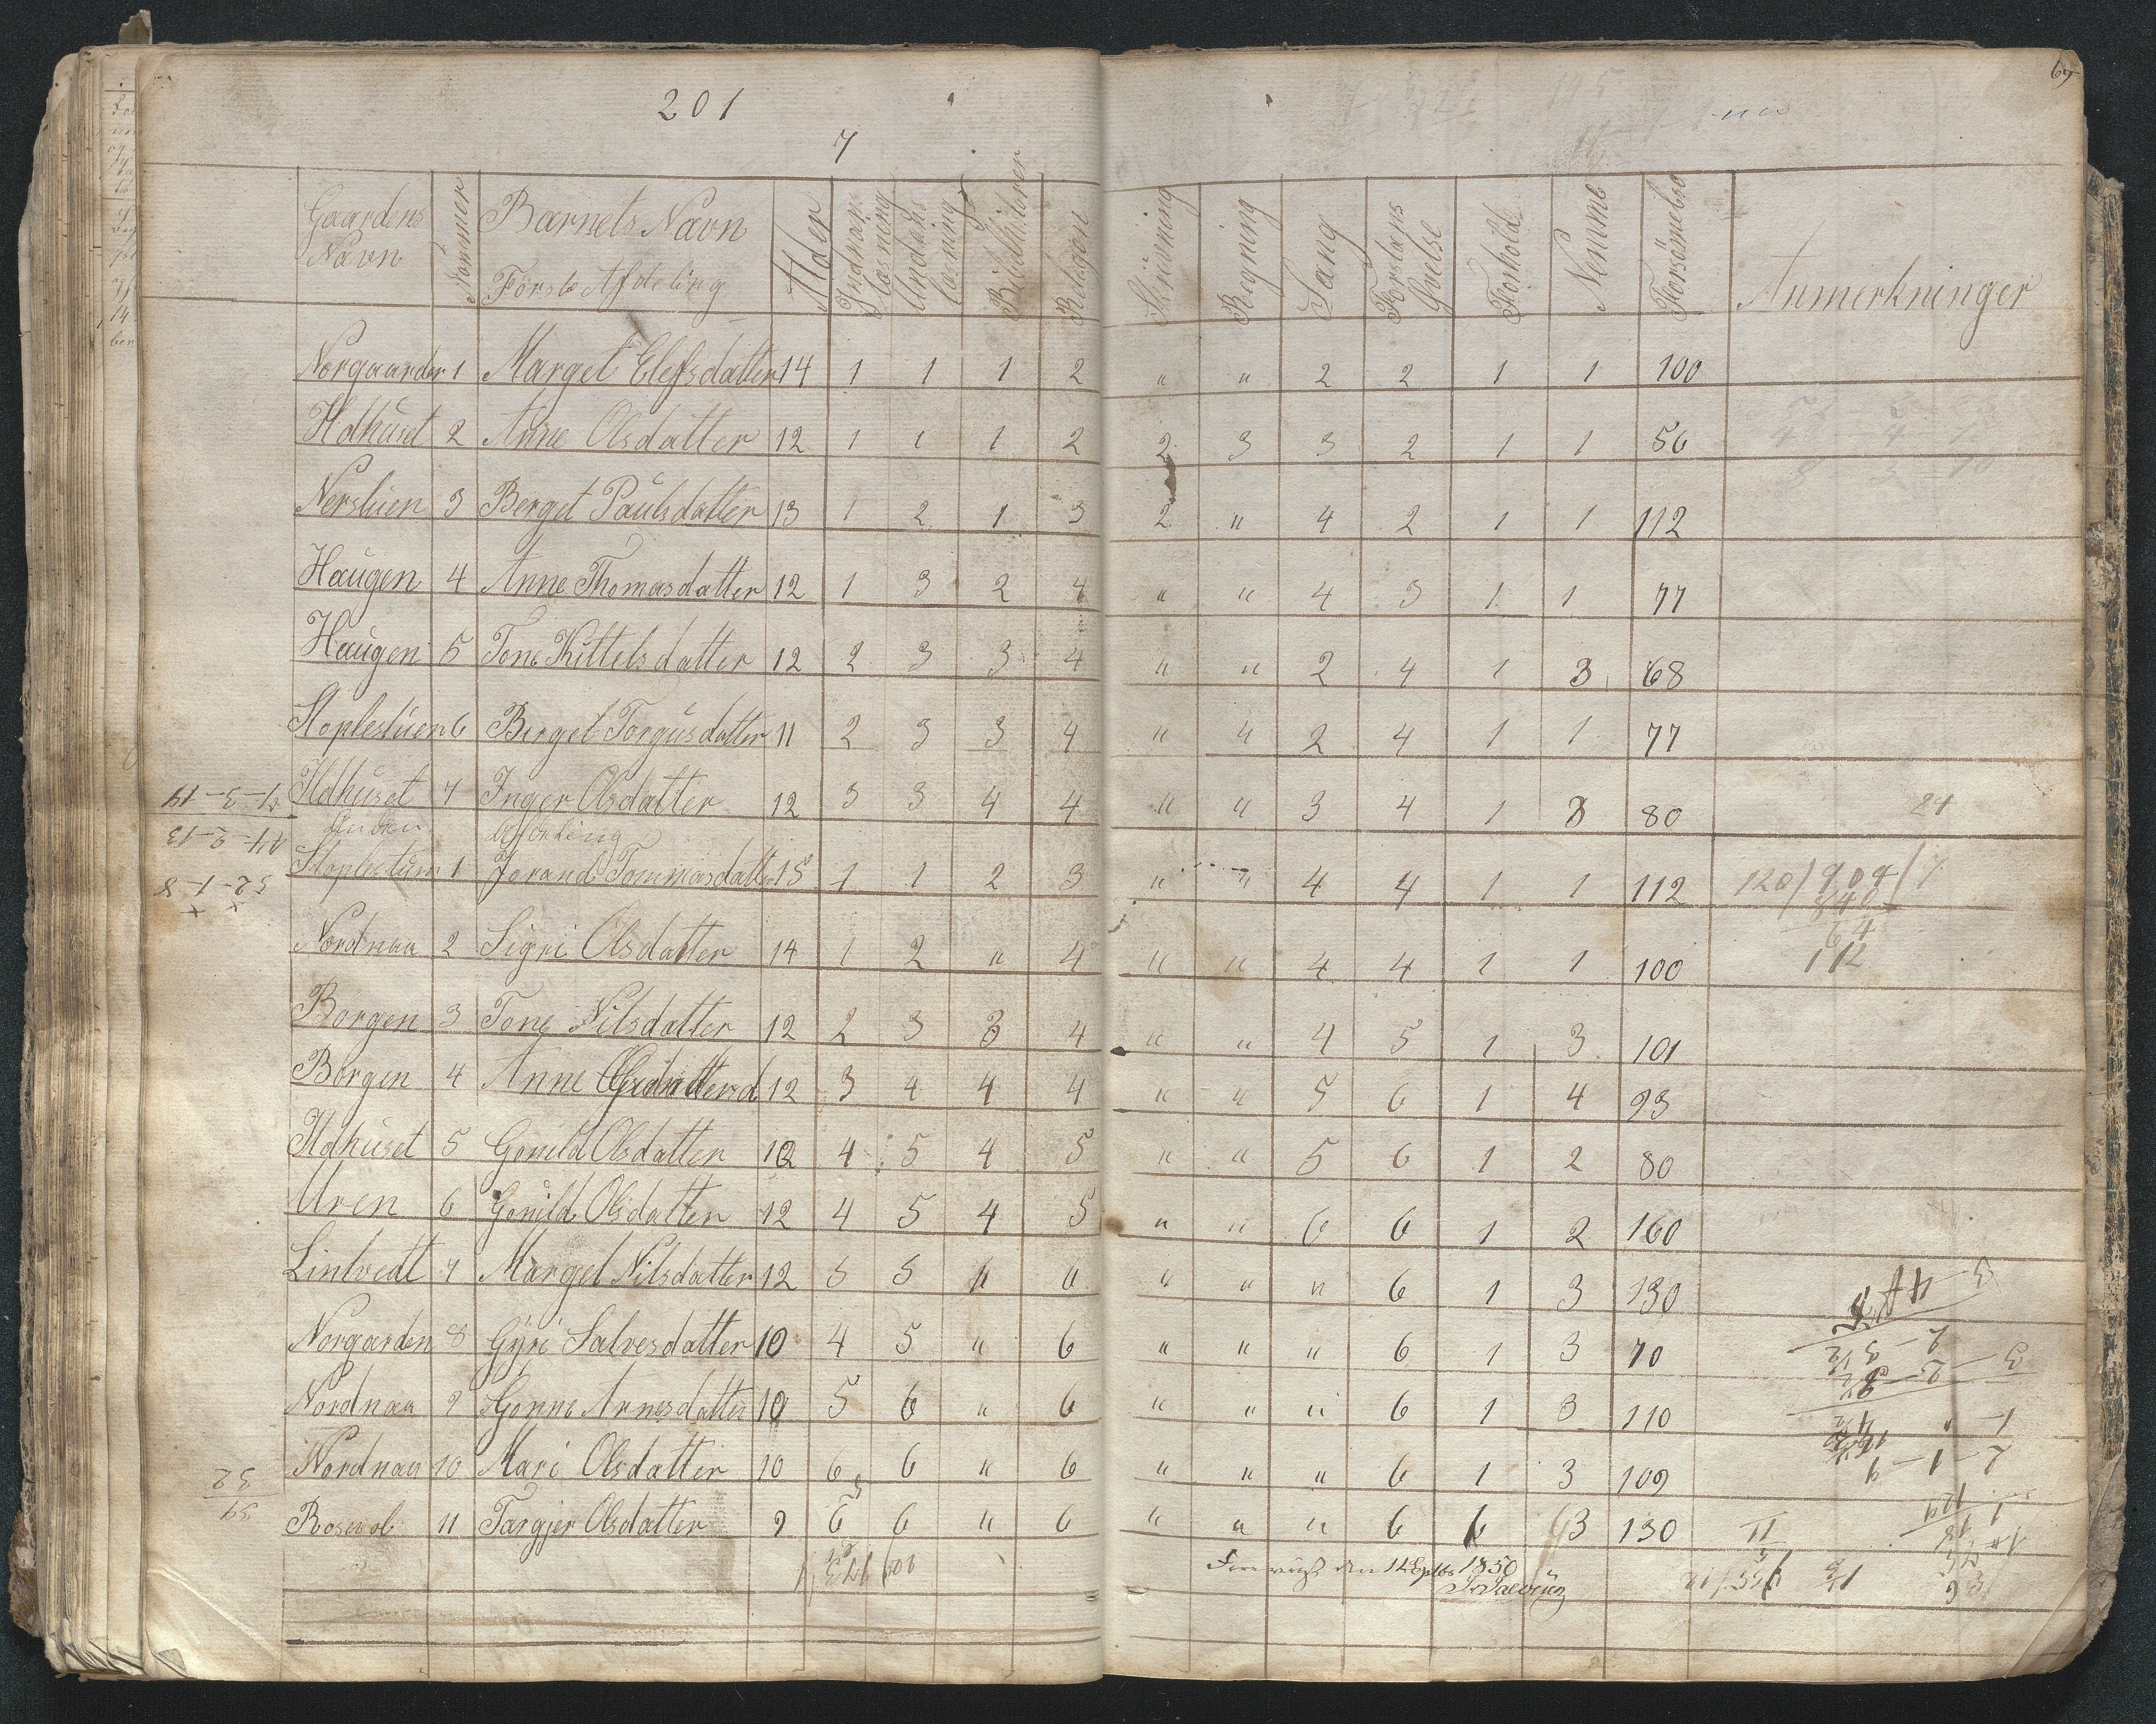 201
7
69
Gaardens Navn Nommer Barnets Navn Alder Indnads Læsning Undads Læsning Bibelhistorer Religion Skrivning Regning Sang Forstands Øvelse Forhold Nemme Forsømelse Anmerkninger
Første Afdeling
Norgaarden 1 Marget Elefsdatter 14 1 1 1 2 " " 2 2 1 1 100
Ildhuset 2 Anne Olsdatter 12 1 1 1 2 2 3 3 2 1 1 56
Nersluen 3 Berget Paulsdatter 13 1 2 1 3 2 " 4 2 1 1 112
Haugen 4 Anne Thomasdatter 12 1 3 2 4 " " 4 3 1 1 77
Haugen 5 Tone Kittelsdatter 12 2 3 3 4 " " 2 4 1 3 68
Stoplestuen 6 Berget Torgusdatter 11 2 3 3 4 " " 2 4 1 1 77
Ildhuset 7 Inger Olsdatter 12 3 3 4 4 " " 3 4 1 3 80
Anden Afdeling
Stoplestuen 1 Jorand Tommasdatter 15 1 1 2 3 " " 4 4 1 1 112
Nordnaa 2 Sigri Olsdatter 14 1 2 " 4 " " 4 4 1 1 100
Borgen 3 Tone Nilsdatter 12 2 3 3 4 " " 4 5 1 3 101
Borgen 4 Anne 12 3 4 4 4 " " 5 6 1 4 93
Ildhuset 5 Gonild Olsdatter 12 4 5 4 5 " " 5 6 1 2 80
Uren 6 Gonild Olsdatter 12 4 5 4 5 " " 6 6 1 2 160
Lintvedt 7 Marget Nilsdatter 12 5 5 " " " 6 1 3 130
Norgarden 8 Gÿri Salvesdatter 10 4 5 " 6 " " " 6 1 3 70
Nordnaa 9 Gonne Arnesdatter 10 5 6 " 6 " " " 6 1 3 110
Nordnaa 10 Mari Olsdatter 10 6 6 " 6 " " " 6 1 3 109
11 Targjer Olsdatter 9 6 6 " 6 " " " 6 6 3 130
den 1850
120/904/7
840
64
112